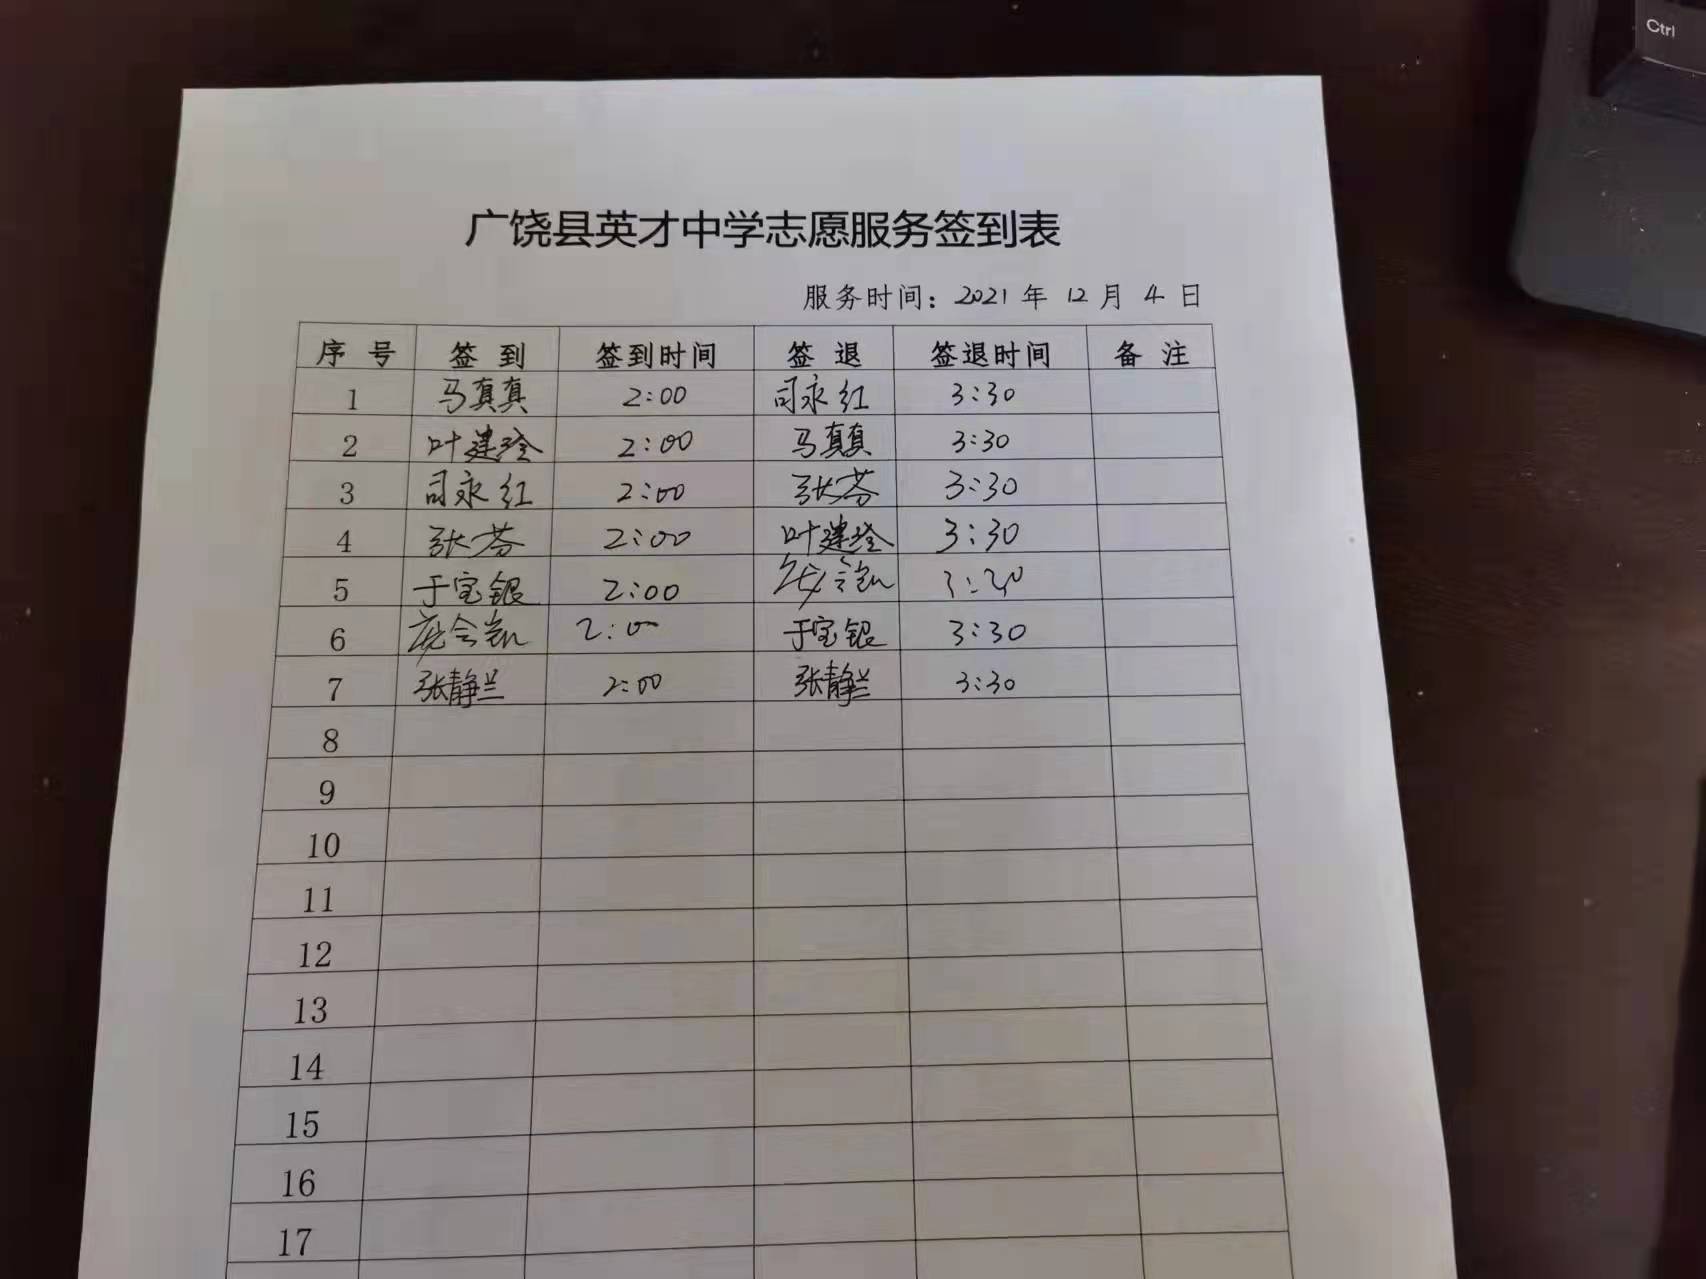 Ctrl
广饶县英才中学志愿服务签到表
服务时间：2021 年 12 月 4 日
序 号 签 到 签到时间 签 退 签退时间 备 注
1 马真真 2:00 司永红 3:30
2 叶建玲 2:00 马真真 3:30
3 司永红 2:00 张芬 3:30
4 张芬 2:00 叶建玲 3:30
5 于宝银 2:00 3:30
6 2:00 于宝银 3:30
7 张静兰 2:00 张静兰 3:30
8
9
10
11
12
13
14
15
16
17